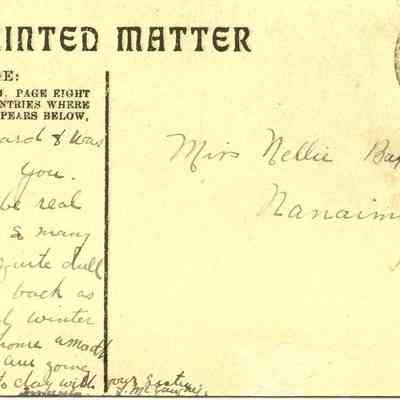 INTED MATTER
E:
. PAGE EIGHT
NTRIES WHERE
PEARS BELOW,
ard & was
you.
be real
& many
quite dull
back as
winter
home a month
are going
to day with your
Miss Nellie Ba
Nanaim